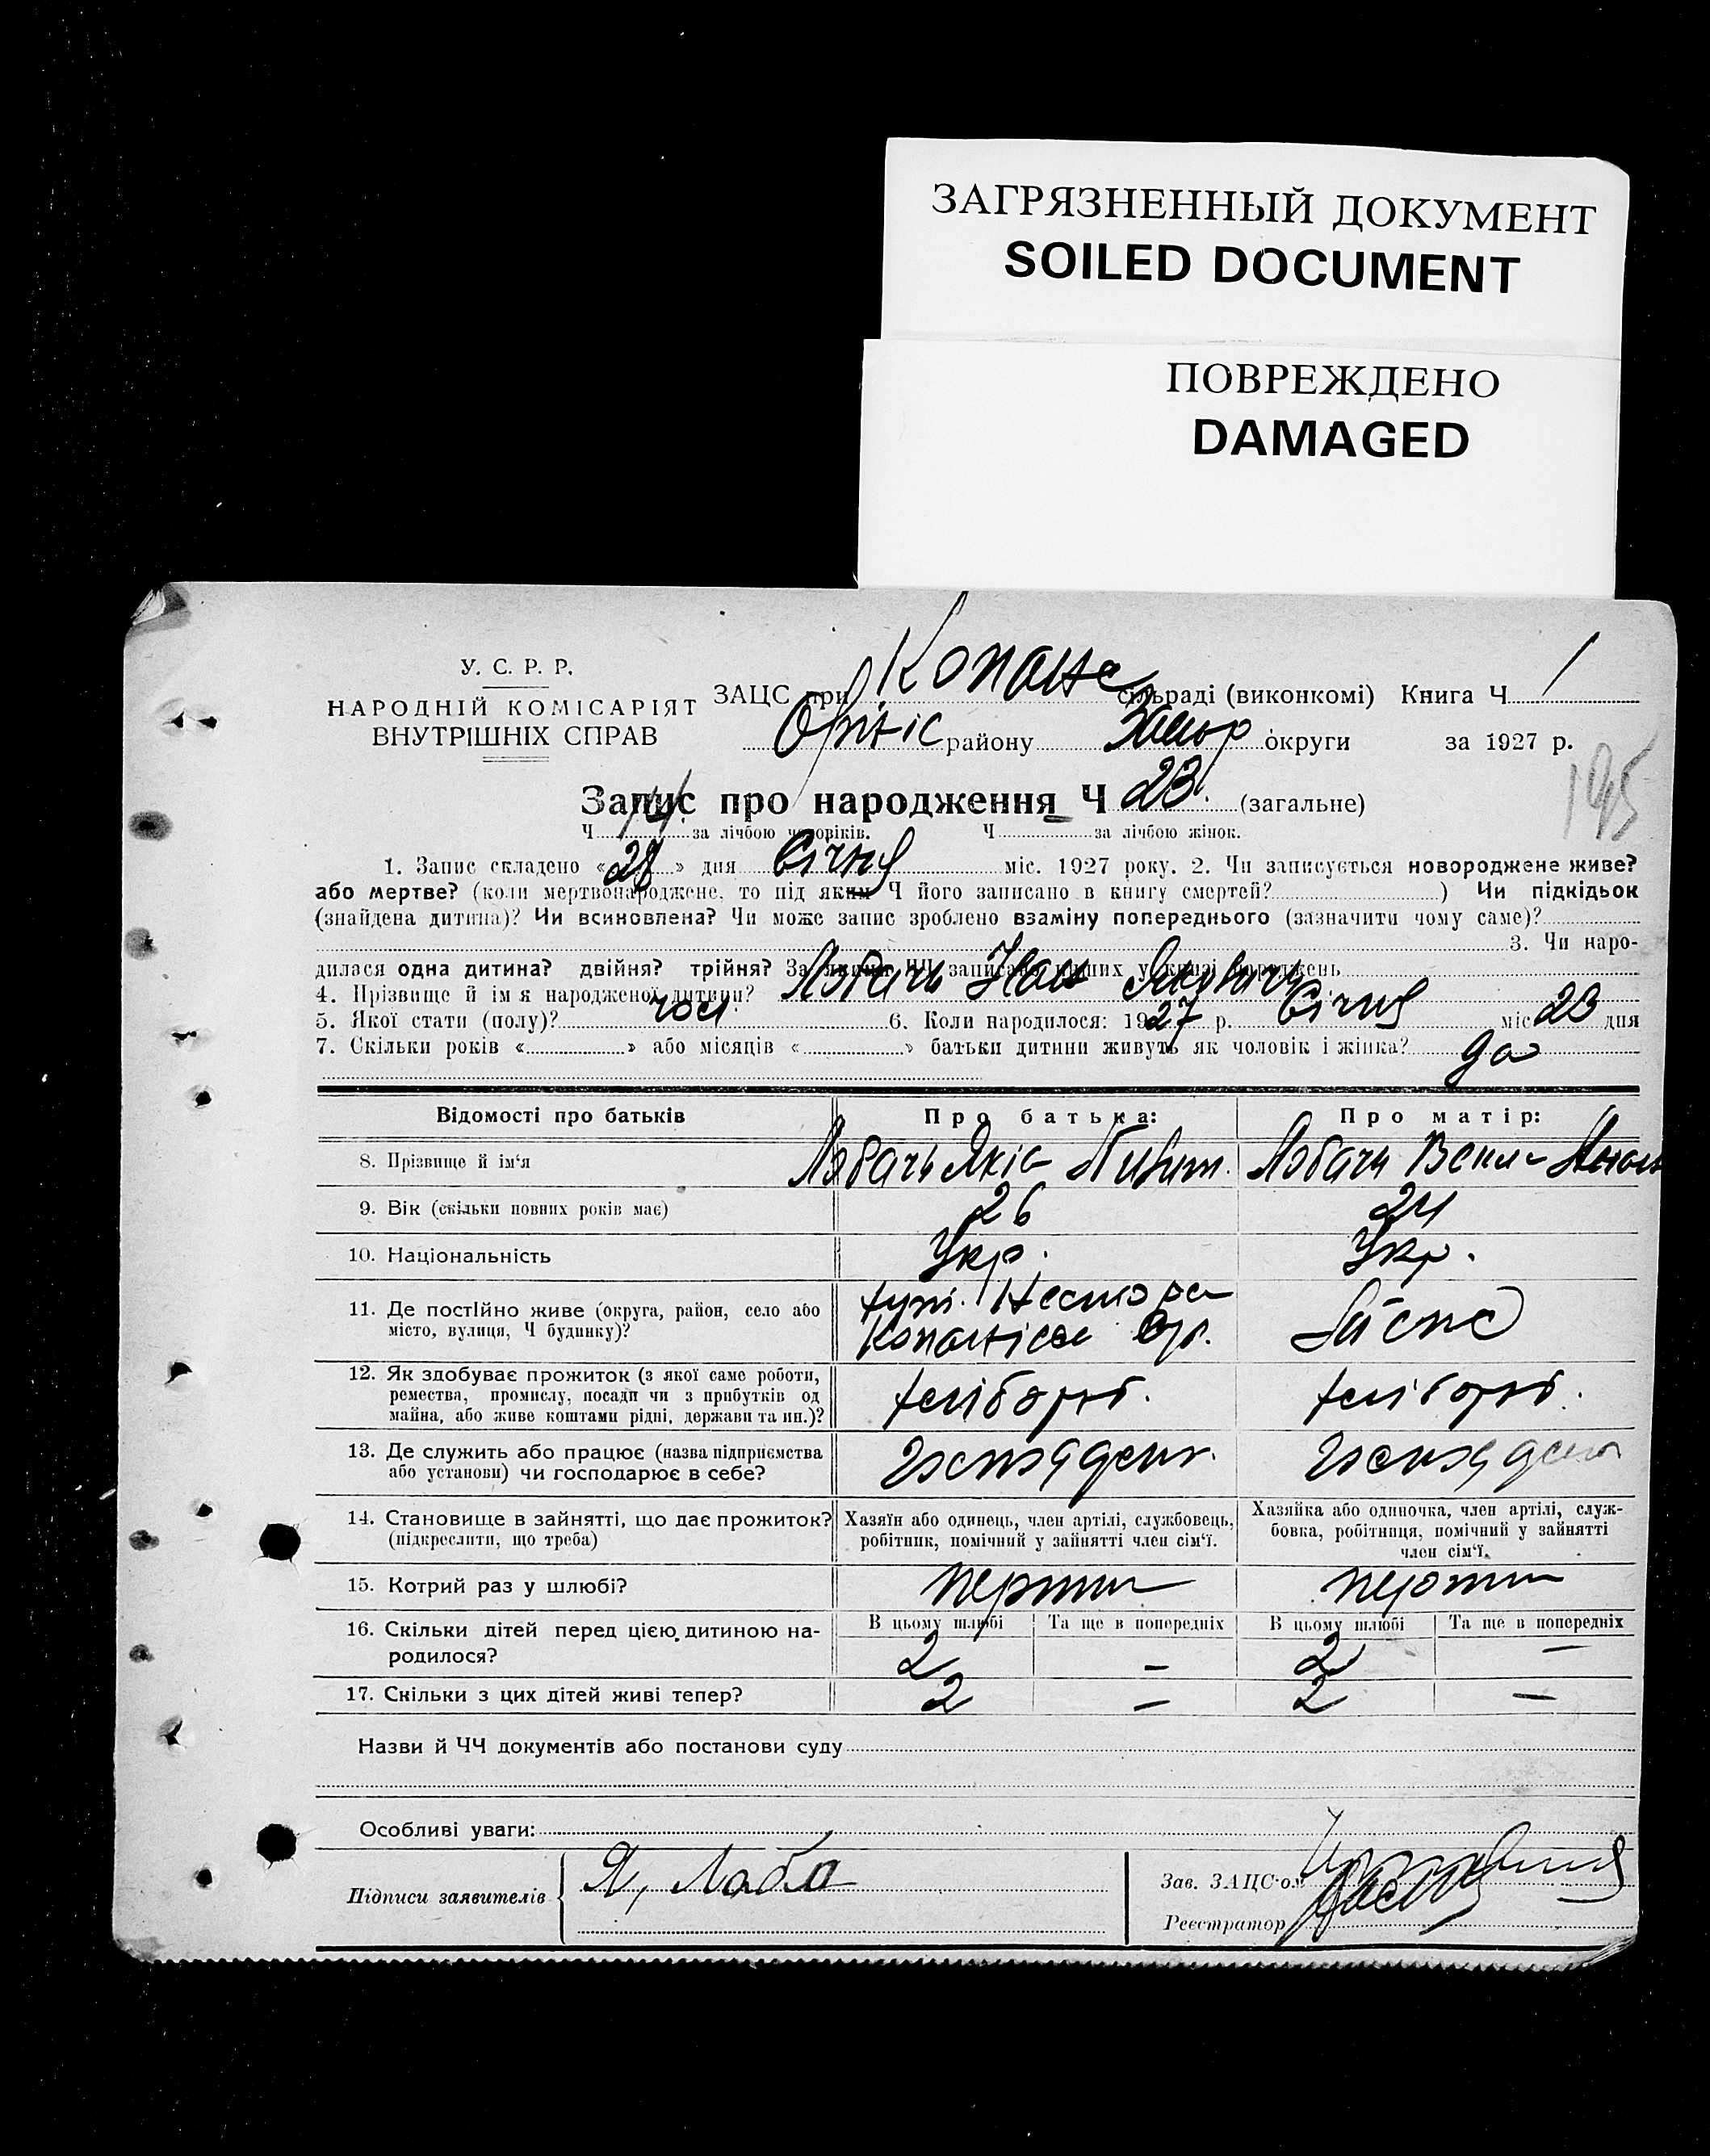 ЗАГРЯЗНЕННЫЙ ДОКУМЕНТ
SOILED DOCUMENT
ПОВРЕЖДЕНО
DAMAGED
У. С. Р. Р.
НАРОДНІЙ КОМІСАРІЯТ
ВНУТРІШНІХ СПРАВ
ЗАЦС при Копане сільраді (виконкомі) Книга Ч 1
Оріхіс району Запор округи за 1927 р.
195
Запис про народження Ч 23. (загальне)
Ч 14 за лічбою чоловіків. Ч за лічбою жінок.
1. Запис складено «28» дня Січня міс. 1927 року. 2. Чи записується новороджене живе?
або мертве? (коли мертвонароджене, то під яким Ч його записано в книгу смертей? ) Чи підкідьок
(знайдена дитина)? Чи всиновлена? Чи може запис зроблено взаміну попереднього (зазначити чому саме)?
3. Чи наро-
дилася одна дитина? двійня? трійня? За якими ЧЧ записано інших у книзі народжень
4. Прізвище й ім'я народженої дитини? Лобачь Іван Якович
5. Якої стати (полу)? чол. 6. Коли народилося: 1927 р. Січня міс 23 дня
7. Скільки років « » або місяців « » батьки дитини живуть як чоловік і жінка? да
Відомості про батьків Про батька: Про матір:
8. Прізвище й ім'я Лобачь Яків Лобачь
9. Вік (скільки повних років має) 26 24
10. Національність Укр. Укр.
11. Де постійно живе (округа, район, село або
місто, вулиця, Ч будинку)?
хут. Нестора
12. Як здобуває прожиток (з якої саме роботи,
ремества, промислу, посади чи з прибутків од
майна, або живе коштами рідні, держави та ин.)?
хлібороб. хлібороб.
13. Де служить або працює (назва підприємства
або установи) чи господарює в себе?
14. Становище в зайнятті, що дає прожиток?
(підкреслити, що треба)
Хазяїн або одинець, член артілі, службовець,
робітник, помічний у зайнятті член сім'ї.
Хазяйка або одиночка, член артілі, служ-
бовка, робітниця, помічний у зайнятті
член сім'ї.
15. Котрий раз у шлюбі?
16. Скільки дітей перед цією дитиною на-
родилося?
В цьому шлюбі Та ще в попередніх В цьому шлюбі Та ще в попередніх
2 – 2 –
17. Скільки з цих дітей живі тепер? 2 – 2 –
Назви й ЧЧ документів або постанови суду
Особливі уваги:
Підписи заявителів Я, Лоба
Зав. ЗАЦС-ом
Реєстратор